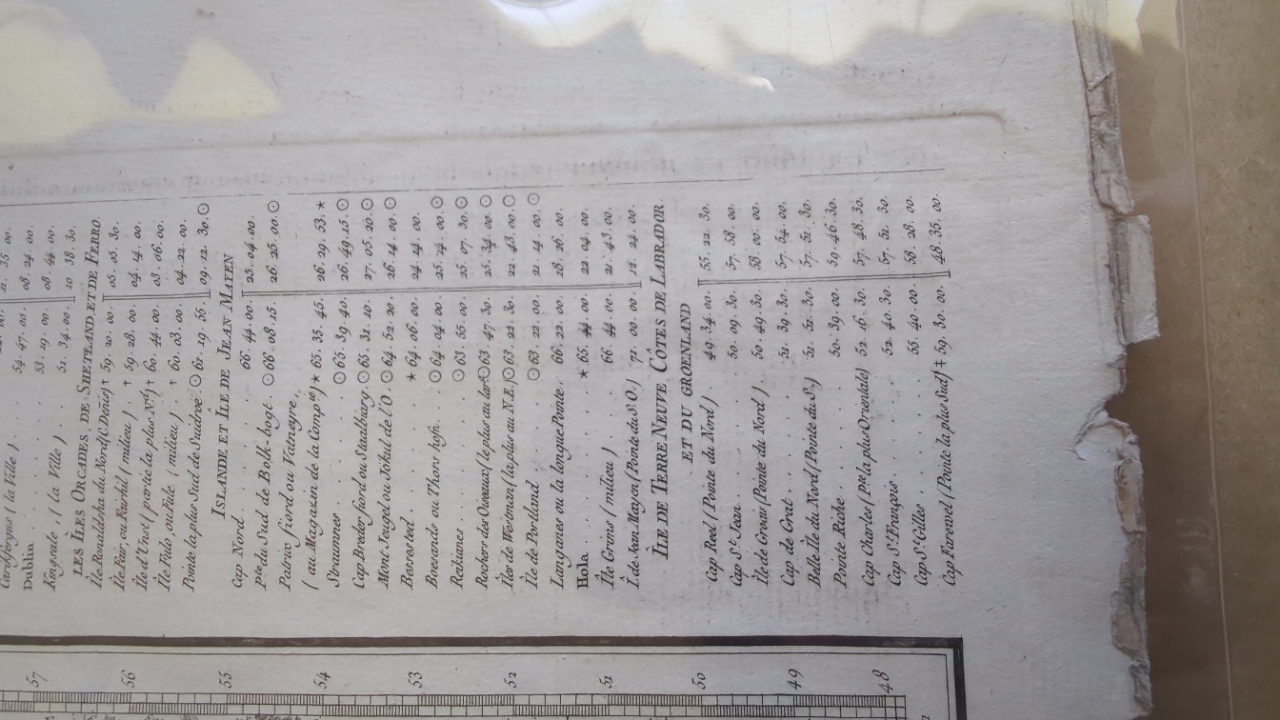 54. 47. 00.
Dublin . . . . 53. 19. 00. 08. 24. 00.
Kingsale, (la Ville) . . . 51. 34. 00. 10 18. 30.
LES ÎLES ORCADES DE SHETLAND ET DE FERRO.
† 59. 20. 00. 05. 05. 30.
(milieu) † 59. 28. 00. 04. 14. 00.
† 60. 44. 00. 03. 06. 00.
(milieu) . † 60. 03. 00. 04. 22. 00.
Pointe la plus Sud de Suidroe. ☉ 61. 19. 55. 09. 12. 30. ☉
ISLANDE ET ILE DE JEAN MAYEN
Cap Nord . . . . 66. 44. 00. 25. 04. 00.
Pte du Sud de Bolk-bogt. ☉ 66. 08. 15. 26. 25. 00. ☉
Patrix fiord ou Vatneyre,.
(au Magazin de la Compie) ★ 65. 35. 45. 26. 29. 53. ★
Straumnes . . . . ☉ 65. 39. 40. 26. 49. 15. ☉
☉ 65. 32. 10. 27. 05. 20. ☉
Mont Jeugel ou Jokul de l'O. ☉ 64 52. 20. 26. 14. 00. ☉
Besested . . . . ★ 64. 06. 00. 24. 14. 00.
☉ 64. 04. 00. 25. 14. 00. ☉
Rekianes . . . . ☉ 63. 55. 00. 25. 07. 30. ☉
Rochers des Oiseaux (le plus au large) ☉ 63 47. 30. 25. 34. 00. ☉
(la plus au N.E.) ☉ 63. 22. 30. 22. 43. 00. ☉
Île de Portland . . . ☉ 63. 22. 00. 21. 14. 00. ☉
Langenes ou la longue Pointe. 66. 22. 00. 18. 26. 00.
Hola . . . . ★ 65. 44. 00. 22. 04. 00.
Île Grims (milieu) . . 66. 44. 00. 21. 43. 00.
Î. de Jean Mayen (Pointe du S.O.) 71. 00. 00. 12. 24. 00.
ÎLE DE TERRE NEUVE CÔTES DE LABRADOR
ET DU GROENLAND
Cap Red (Pointe du Nord) . 49. 34. 00. 55. 22. 30.
Cap St. Jean. . . . 50. 09. 30. 57. 58. 00.
Île de Grouï (Pointe du Nord). . 50. 49. 30. 58. 00. 00.
Cap de Grat . . . . 51. 39. 00. 57. 54. 00.
Belle Île du Nord (Pointe du S.) 51. 51. 30.
Pointe Riche . . . . 50. 39. 00. 59. 46. 30.
Cap Charles (Pte la plus Orientale) 52. 16. 30. 57. 48. 30.
Cap St. François . . . 52. 40. 30. 57. 51. 30.
Cap St. Gilles . . . 55. 40. 00. 58. 28. 00.
Cap Farewel (Pointe la plus Sud) † 59. 30. 00. 48. 35. 00.
57 56 55 54 53 52 51 50 49 48